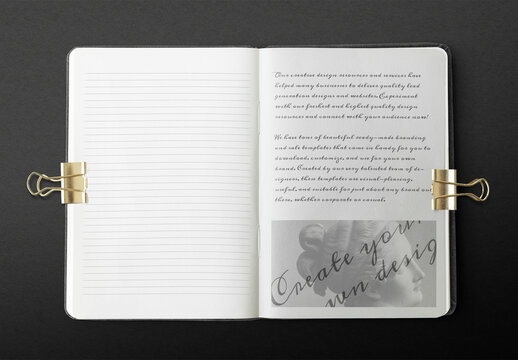 Our creative design resources and services have
helped many businesses to deliver quality lead
generation designs and websites. Experiment
with our freshest and highest quality design
resources and connect with your audience now!
We have tons of beautiful ready-made branding
and sale templates that come in handy for you to
download, customize, and use for your own
brand. Created by our very talented team of de-
signers, these templates are visual-pleasing,
useful, and suitable for just about any brand out
there, whether corporate or casual.
Create your
own design